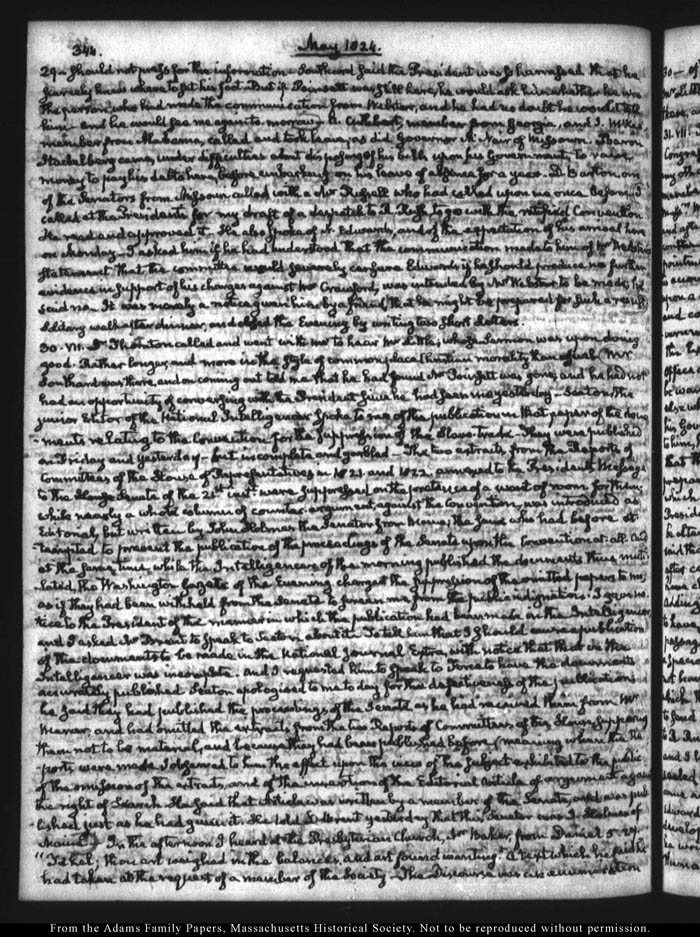 346.
May 1824.
29 - should not press for the information - Southard said the President was so harrassed that he
scarcely knew where to set his foot. But if Poinsett was still here, he would ask him whether he was
the person who had made the communication from Webster, and he had no doubt he would tell
him - and he would see me again to-morrow. A. Cuthbert, member from Georgia, and J. McKee
member from Alabama, called and took leave, as did Governor McNair of Missouri. Baron
Stackelberg came, under difficulties about disposing of his bills upon his Government, to raise
money to pay his debts here, before embarking on his leave of absence for a year. D. Barton, one
of the Senators from Missouri called with a Mr Russell who had called upon me once before. I
called at the President's for my draft of a despatch to R. Rush, to go with the ratified Convention.
He read and approved it. He also spoke of N. Edwards, and of the expectation of his arrival here
on Monday. I asked him if he had understood that the communication made to him of Mr Webster's
statement that the committee would severely censure Edwards if he should produce no further
evidence in support of his charges against Mr Crawford, was intended by Mr Webster to be made, he
said no. It was merely a notice given him by a friend, that he might be prepared for such a result
Solitary walk after dinner, and closed the Evening by writing two short letters.
30. VII. Dr Thornton called and went with me to hear Mr Little, whose Sermon was upon doing
good. Rather longer, and more in the style of common place Christian morality than usual. Mr
Southard was there, and on coming out told me that he had found Mr Poinsett was gone, and he had not
had an opportunity of conversing with the President since he had seen me yesterday - Seaton, the
junior Editor of the National Intelligencer spoke to me of the publication in that paper of the docu-
-ments relating to the Convention for the suppression of the Slave-trade - They were published
on Friday and yesterday - but incomplete and garbled - The two extracts from the Reports of
Committees of the House of Representatives in 1821 and 1822, annexed to the President's Message
to the Senate of the 21st inst. were suppressed on the pretence of a want of room for them,
while nearly a whole column of counter argument against the Convention, was introduced as
Editorial, but written by John Holmes the Senator from Maine, the same who had before at-
-tempted to prevent the publication of the proceedings of the Senate upon the Convention at all. And
at the same time, while the Intelligencer of the morning published the documents thus muti-
lated, the Washington Gazette of the Evening charged the suppression of the omitted papers to me,
as if they had been withheld from the Senate to screen me from the public indignation. I gave no-
tice to the President of the manner in which the publication had been made in the Intelligencer
and I asked Mr Brent to speak to Seaton about it. To tell him that I should cause a publication
of the documents to be made in the National Journal Extra, with notice that that in the
Intelligencer was incomplete. And I requested him to speak to Force to have the documents
accurately published. Seaton apologised to me to day for the defectiveness of the publications
he said they had published the proceedings of the Senate as he had received them from Mr
and had omitted the extracts from the two Reports of Committees of the House supposing
them not to be material, and because they had been published before (meaning when the Re
ports were made. I observed to him the effect upon the view of the subject exhibited to the public
of the omission of the extracts, and of the insertion of the Editorial Article of argument against
the right of Search. He said that Article was written by a member of the Senate, and was pub
lished just as he had given it. He told D. Brent yesterday that the Senator was J. Holmes of
Maine. In the afternoon I heard at the Presbyterian Church, Mr Baker, from Daniel 5. 27.
"Tekel; thou art weighed in the balances, and art found wanting." A text which he said he
had taken at the request of a member of the Society - The Discourse was an enumeration
From the Adams Family Papers, Massachusetts Historical Society. Not to be reproduced without permission.